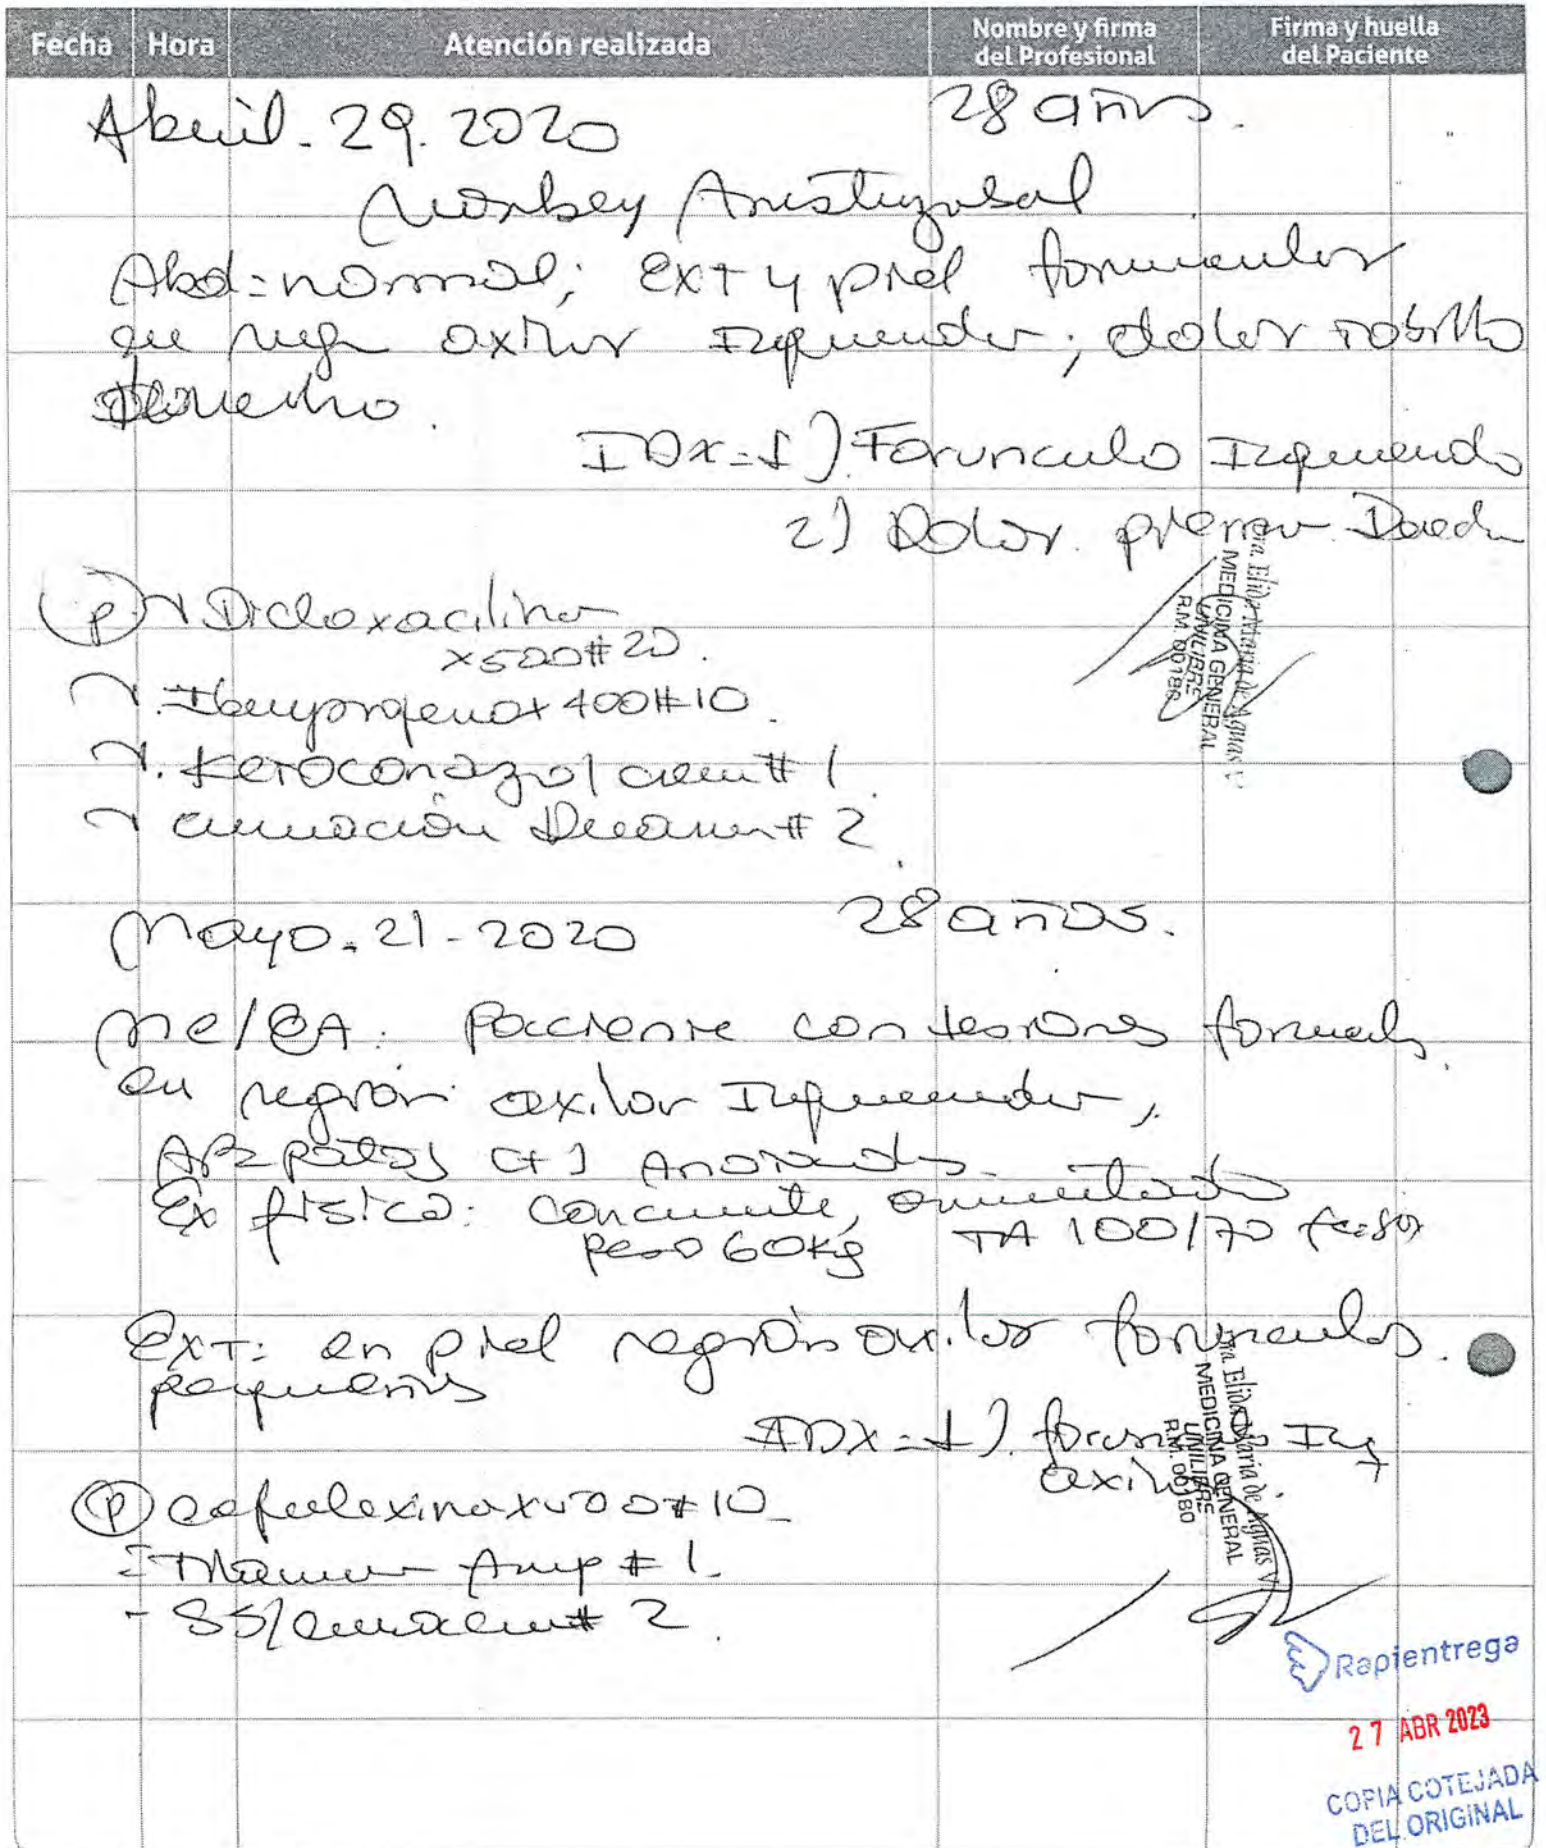 Fecha Hora Atención realizada Nombre y firma del Profesional Firma y huella del Paciente
Abril. 29. 2020 28 años.
Norbey Aristizabal
Abd = normal; Ext y piel forunculos
en axilar Izquierda; dolor tobillo
Derecho.
IDx = 1) Forunculo Izquierdo
2) Dolor pierna Derecha
Dra. Elida Maria de Aguas V
MEDICINA GENERAL
UNILIBRE
R.M. 00180
(P) Dicloxacilina
x500#20.
Ibuprofeno x 400#10.
Ketoconazol crema # 1
curación # 2
Mayo. 21 - 2020 28 años.
MC/EA: Paciente con lesiones
en región axilar Izquierda,
AP= patol (+) Anotados.
Ex físico: Conciente, orientado
peso 60kg TA 100/70
Ext: en piel región axilar forunculos.
pequeños
IDX = 1). Izq
axilar
Dra. Elida Maria de Aguas V
MEDICINA GENERAL
UNILIBRE
R.M. 00180
(P) cefalexina x 500 # 10
- Amp # 1.
- SS/ # 2.
Rapientrega
27 ABR 2023
COPIA COTEJADA
DEL ORIGINAL